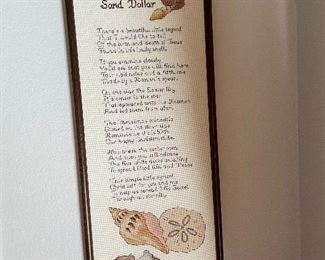 Sand Dollar
There's a beautiful little legend
That I would like to tell
Of the birth and death of Jesus
Found in this lovely shell.
If you examine closely
You'll see that you find here
Four nail holes and a fifth one
Made by a Roman's spear.
On one side the Easter lily
Its center is the star
That appeared unto the shepherds
And led them from afar.
The Christmas Poinsettia
Etched on the other side
Reminds us of His birth
Our happy Christmastide.
Now break the center open
And here you will release
The five white doves awaiting
To spread Good Will and Peace.
This simple little symbol
Christ left for you and me
To help us spread His Gospel
Through all eternity.